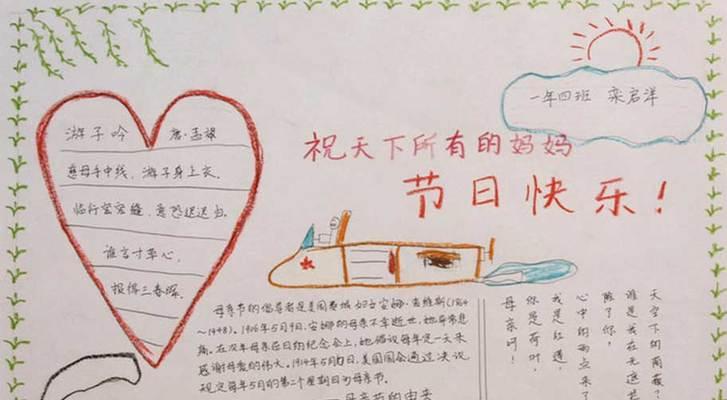 一年四班 栾启洋
祝天下所有的妈妈
节日快乐！
游子吟 唐·孟郊
慈母手中线，游子身上衣。
临行密密缝，意恐迟迟归。
谁言寸草心，
报得三春晖。
母亲节的倡导者是美国费城妇女安娜·贾维斯(1864
～1948)。1906年5月9日，安娜的母亲不幸逝世，她非常悲
痛。在次年母亲逝日纪念会上，她倡议每年定一天来
感谢母爱的伟大。1914年5月10日，美国国会通过决议
规定每年5月的第二个星期日为母亲节。
母亲节的由来
母亲呵！
你是荷叶，
我是红莲，
心中的雨点来了
除了你，
谁是我在无遮
天空下的荫蔽？